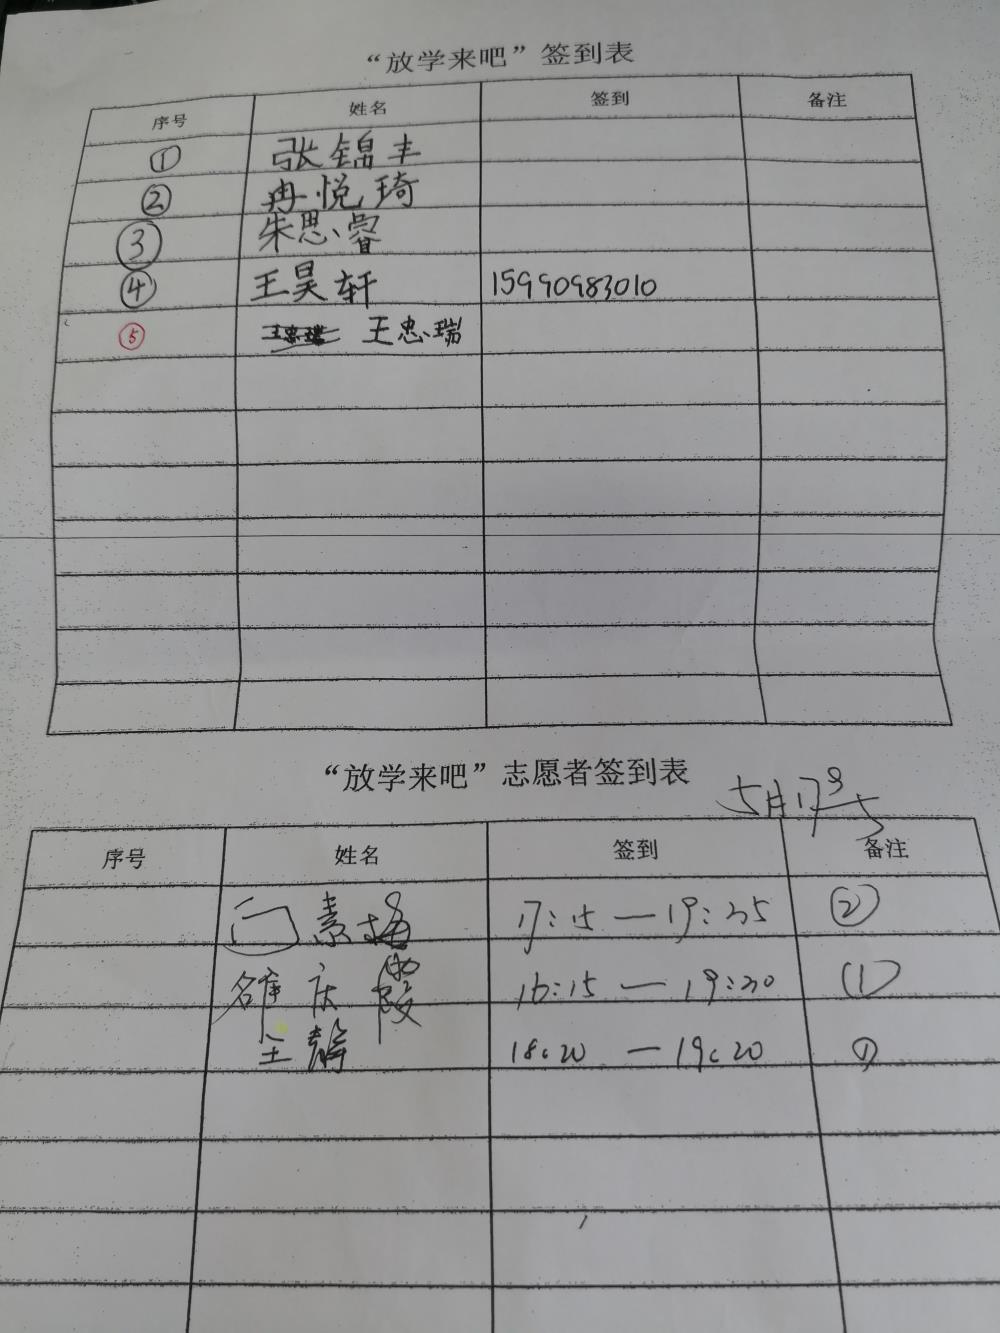 “放学来吧”签到表
序号 姓名 签到 备注
① 张锦丰
② 冉悦琦
③ 朱思睿
④ 王昊轩 15990983010
⑤ 王忠瑞 王忠瑞
“放学来吧”志愿者签到表
5月17号
序号 姓名 签到 备注
门素梅 17:15—19:35 ②
庆霞 16:15—19:20 ①
王 18:20—19:20 ①